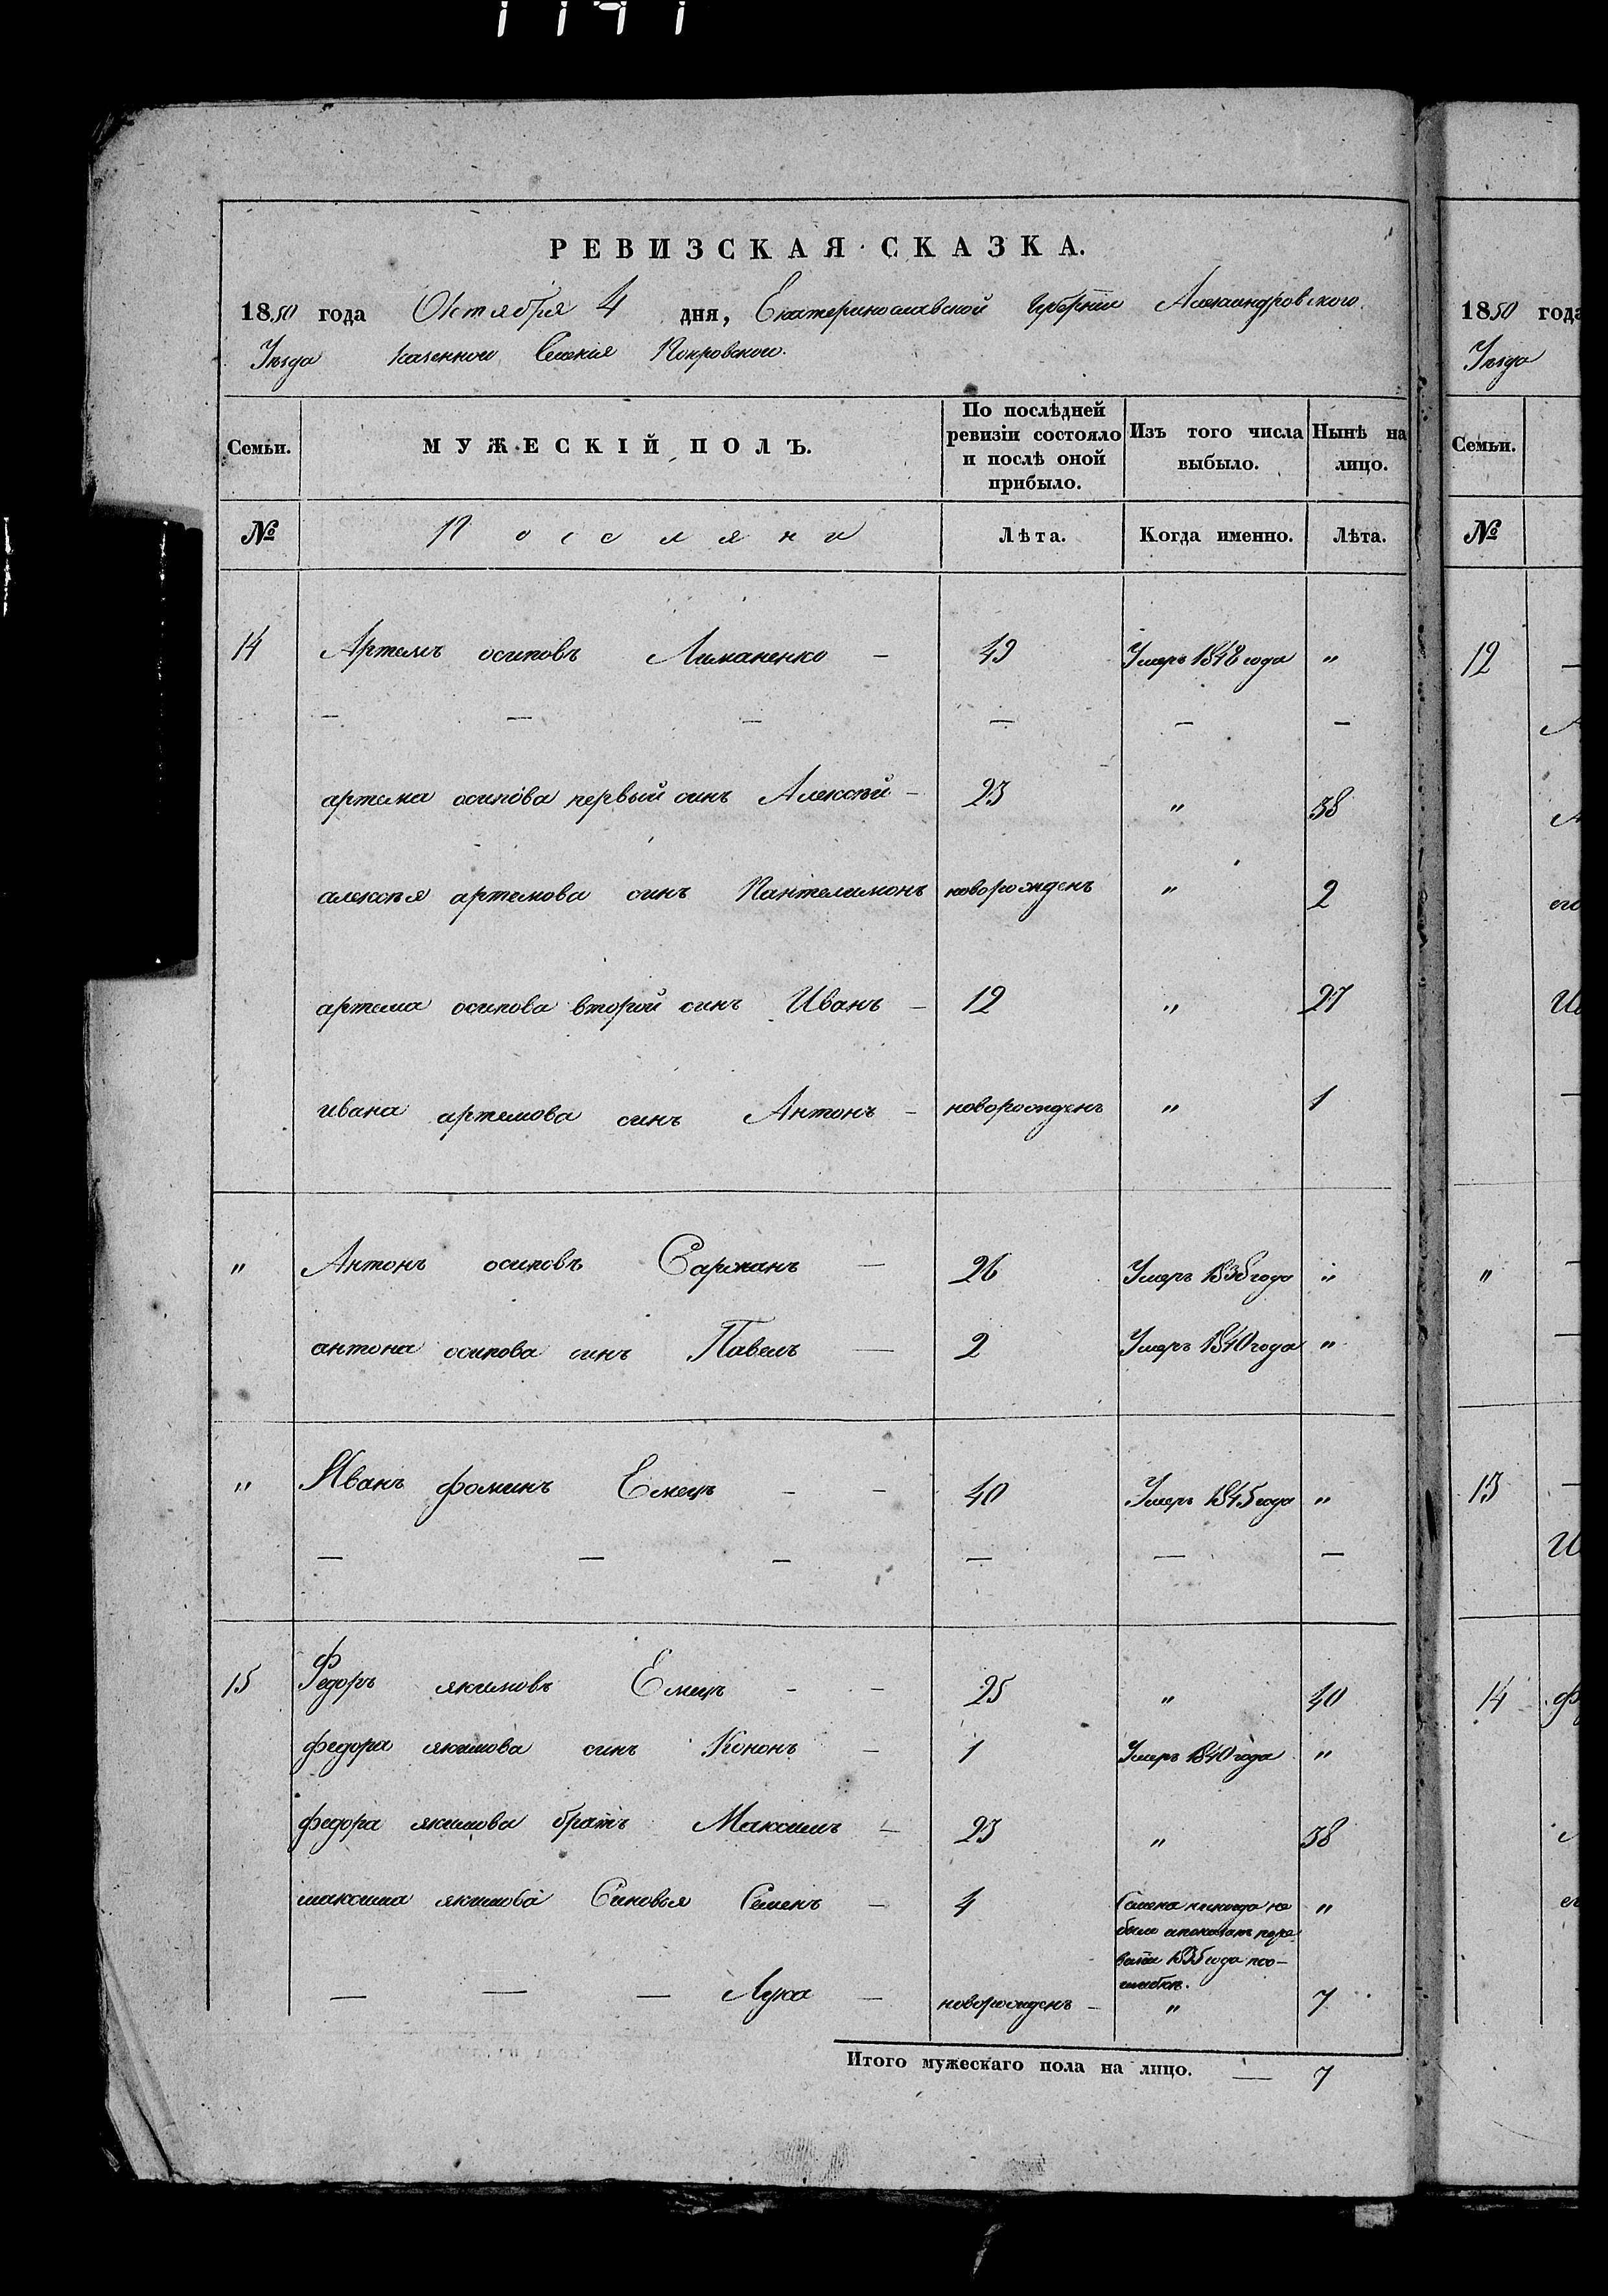 РЕВИЗСКАЯ СКАЗКА.
1850 года Октября 4 дня, Екатеринославской Губерніи Александровского
Уѣзда казенного Селенія Покровского.
Семьи. МУЖЕСКІЙ ПОЛЪ. По послѣдней ревизіи состояло и послѣ оной прибыло. Изъ того числа выбыло. Нынѣ на лицо.
№ Поселяни Лѣта. Когда именно. Лѣта.
14 Артемъ осиповъ Лиманенко — 49 Умеръ 1848 года "
— — — — — —
артема осипова первый синъ Алексѣй — 23 " 38
алексѣя артемова синъ Пантелимонъ новорожденъ " 2
артема осипова второй синъ Иванъ — 12 " 27
ивана артемова синъ Антонъ — новорожденъ " 1
" Антонъ осиповъ Саржанъ — 26 Умеръ 1838 года "
антона осипова синъ Павелъ — 2 Умеръ 1840 года "
" Иванъ фоминъ Емецъ — — 40 Умеръ 1845 года "
— — — — — —
15 Федоръ якимовъ Емецъ — — 25 " 40
федора якимова синъ Кононъ — 1 Умеръ 1840 года "
федора якимова братъ Максимъ — 23 " 38
максима якимова Синовья Семенъ — 4 Семена никогда не "
было и показанъ поре
визіи 1835 года поо-
шибкѣ.
— — — Лука — новорожденъ — " 7
Итого мужескаго пола на лицо. — 7
1850 года
Уѣзда
Семьи.
№
12
"
13
14